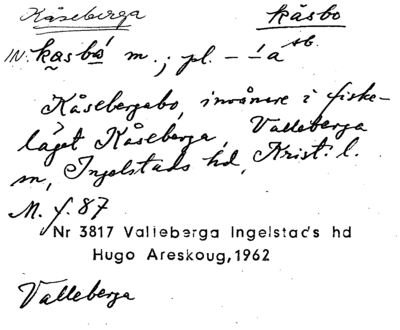 Kåseberga kåsbo
IN: kasbó m.; pl. – ́a sb.
Kåsebergabo, invånare i fiske-
läget Kåseberga, Valleberga
sn, Ingelstads hd, Krist. l.
M. f. 87
Nr 3817 Valleberga Ingelstad's hd
Hugo Areskoug, 1962
Valleberga